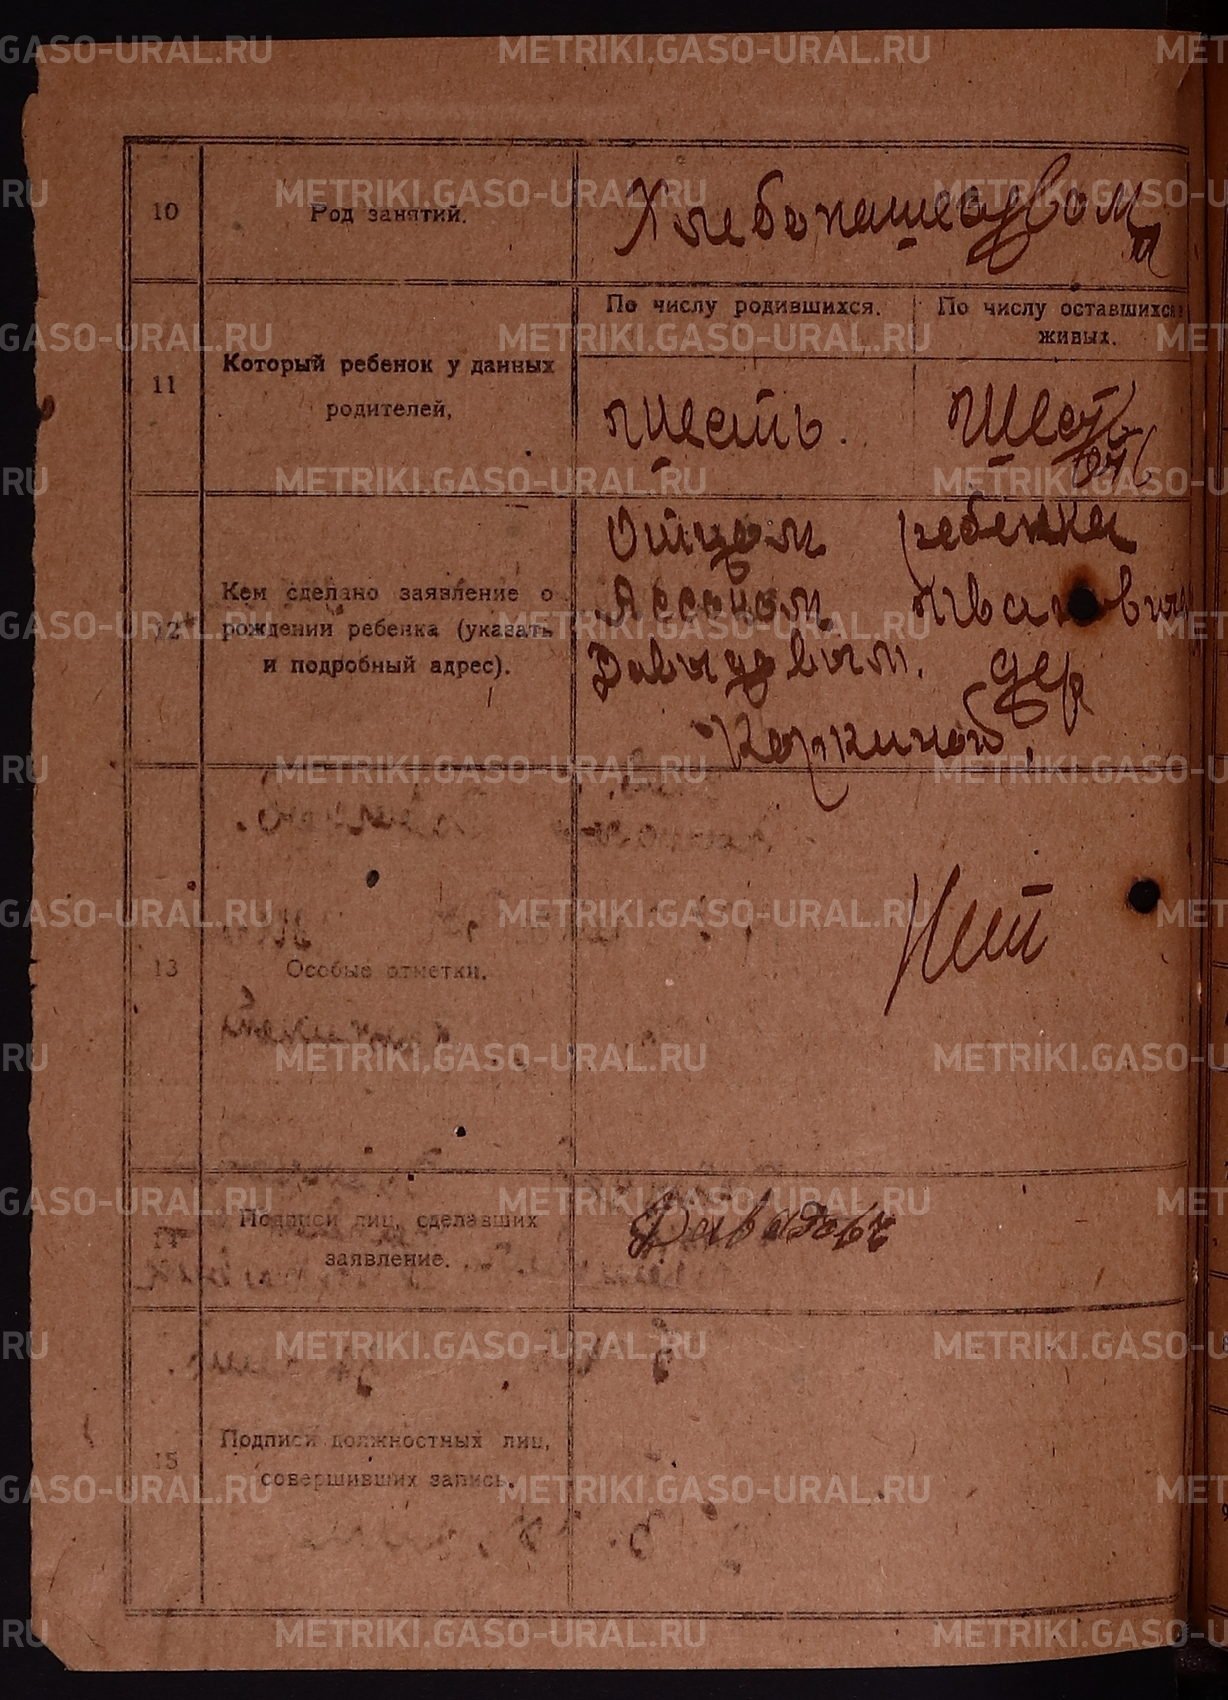 METRIKI.GASO-URAL.RU
10
Род занятий.
Хлебопашеством
11
Который ребенок у данных
родителей,
По числу родившихся.
По числу оставшихся
живых.
шесть
Шесть
12
Кем сделано заявление о
рождении ребенка (указать
и подробный адрес).
Отцом ребенка
Давыдовым. дер
Коркиной.
13
Особые отметки.
Нет
14
Подписи лиц, сделавших
заявление.
15
Подписи должностных лиц,
совершивших запись.